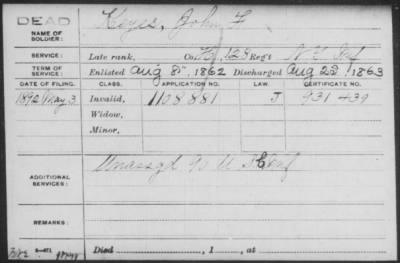 DEAD
NAME OF SOLDIER: Keyes, John F
SERVICE: Late rank, Co. 128 Reg't N.Y. Inf
TERM OF SERVICE: Enlisted Aug 8", 1862 Discharged Aug 23, 1863
DATE OF FILING. CLASS. APPLICATION NO. LAW. CERTIFICATE NO.
1892 May 3 Invalid, 1108881 J 931439
Widow,
Minor,
ADDITIONAL SERVICES: Unassgd N U Inf
REMARKS:
Died , 1 , at